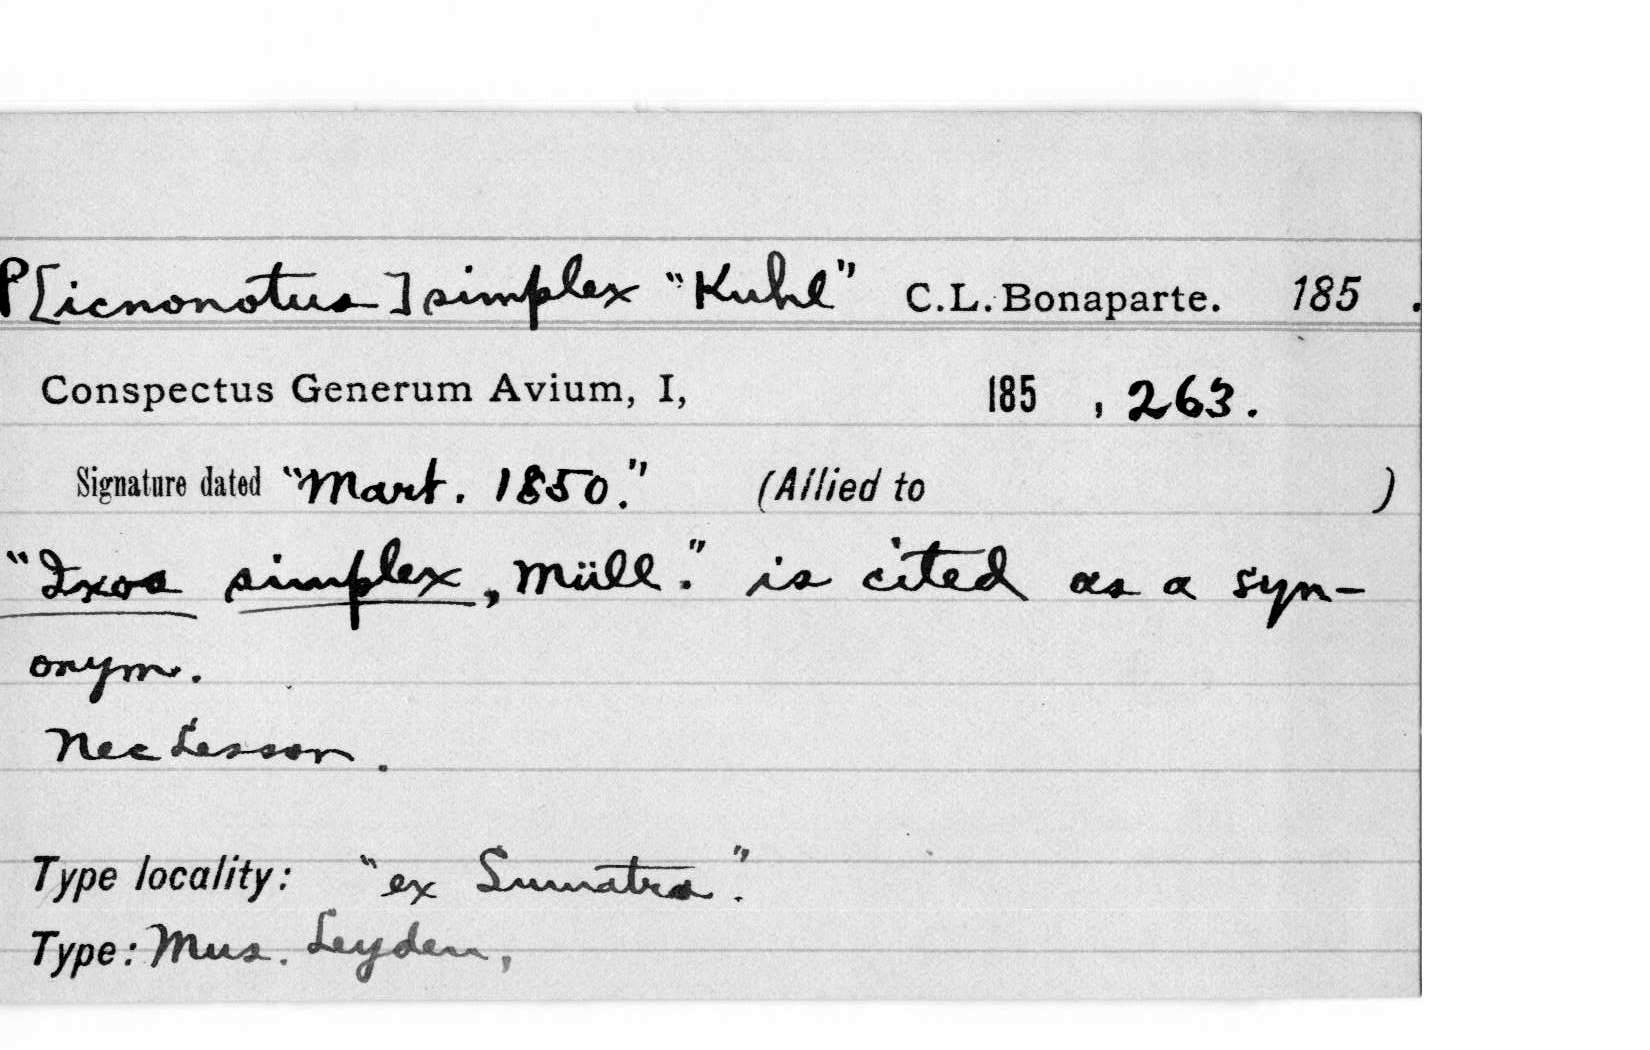 P[icnonotus] simplex "Kuhl" C.L. Bonaparte. 185 .
Conspectus Generum Avium, I, 185 , 263.
Signature dated "Mart. 1850." (Allied to )
"Ixos simplex, Müll." is cited as a syn-
onym.
Nec Lesson.
Type locality: "ex Sumatra."
Type: Mus. Leyden,